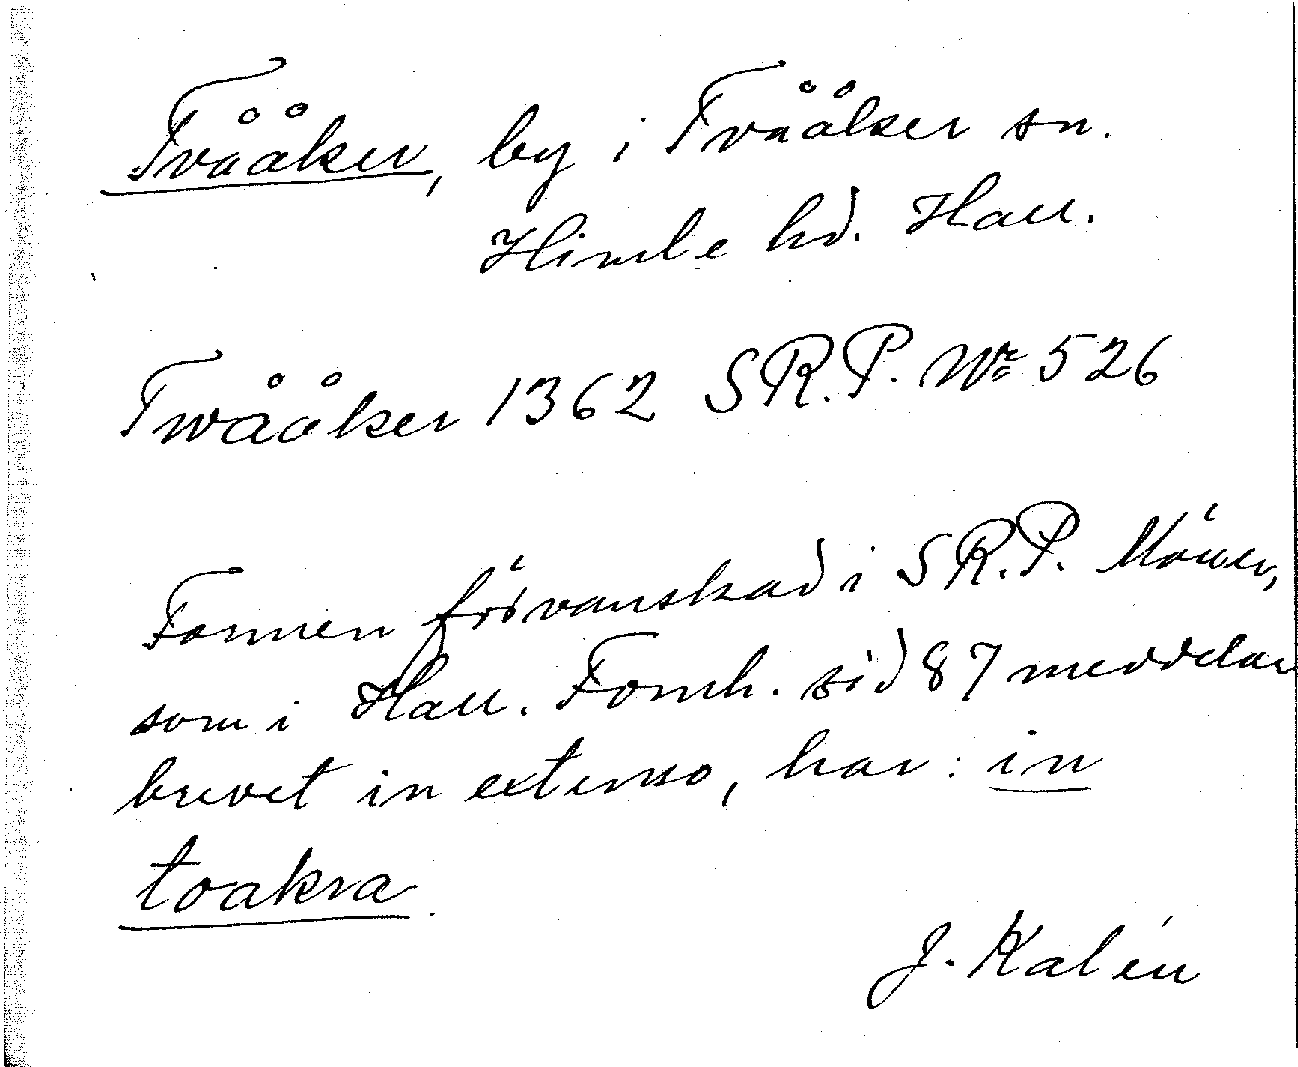 Tvååker, by i Tvååker sn.
Himle hd. Hall.
Twååker 1362 SRP. Nr 526
Formen förvanskad i SR.P. Möller,
som i Hall. Fornh. sid 87 meddelar
brevet in extenso, har: in
toakra.
J. Kalén